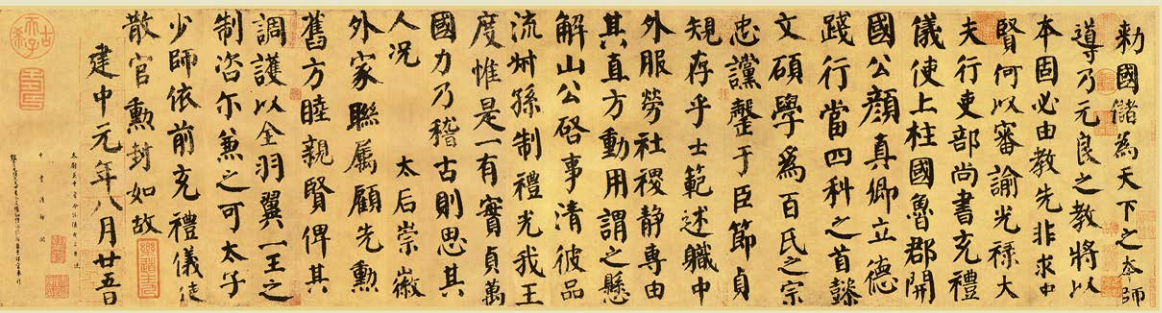 勅國儲為天下之本師
導乃元良之教將以
本固必由教先非求中
賢何以審諭光祿大
夫行吏部尚書充禮
儀使上柱國魯郡開
國公顏真卿立德
踐行當四科之首懿
文碩學為百氏之宗
忠讜罄于臣節貞
規存乎士範述職中
外服勞社稷靜專由
其直方動用謂之懸
解山公啓事清彼品
流叔孫制禮光我王
度惟是一有實貞萬
國力乃稽古則思其
人况 太后崇徽
外家聯屬顧先勳
舊方睦親賢俾其
調護以全羽翼一王之
制咨尔兼之可太子
少師依前充禮儀使
散官勳封如故
建中元年八月廿五日
古希天子